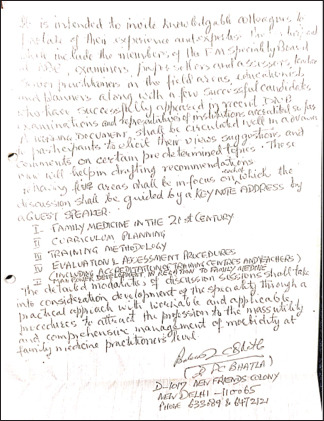 It is intended to invite knowledgable colleagues to
of their experience and expertise. The invited
include the members of the F.M speciality Board
examiners, paper setters and assessors, teachers
practitioners in the field areas, educationists
and planners along with a few successful candidates
who have successfully appeared in recent D.N.B
examinations and representatives of institutions accredited so far.
A WORKING DOCUMENT, shall be circulated well in advance
participants to elicit their views suggestions and
comments on certain pre determined topics. These
will help in drafting recommendations
following five areas shall be in focus, on which the
discussion shall be guided by a KEYNOTE ADDRESS by
a GUEST SPEAKER.
I FAMILY MEDICINE IN THE 21st CENTURY
II CURRICULUM PLANNING
III TRAINING METHODOLOGY
IV EVALUATION & ASSESSMENT PROCEDURES
(INCLUDING ACCREDITATION OF TRAINING CENTRES AND TEACHERS)
V MAN POWER DEVELOPMENT IN RELATION TO FAMILY MEDICINE
The detailed modalities of discussion sessions shall take
into consideration development of the speciality through a
practical approach with workable and applicable
procedures to attract the profession to the mass utility
and comprehensive management of morbidity at
family medicine practitioners level
(Dr PC BHATLA)
D-1017 NEW FRIENDS COLONY
NEW DELHI - 110065
PHONE 633689 & 6472121